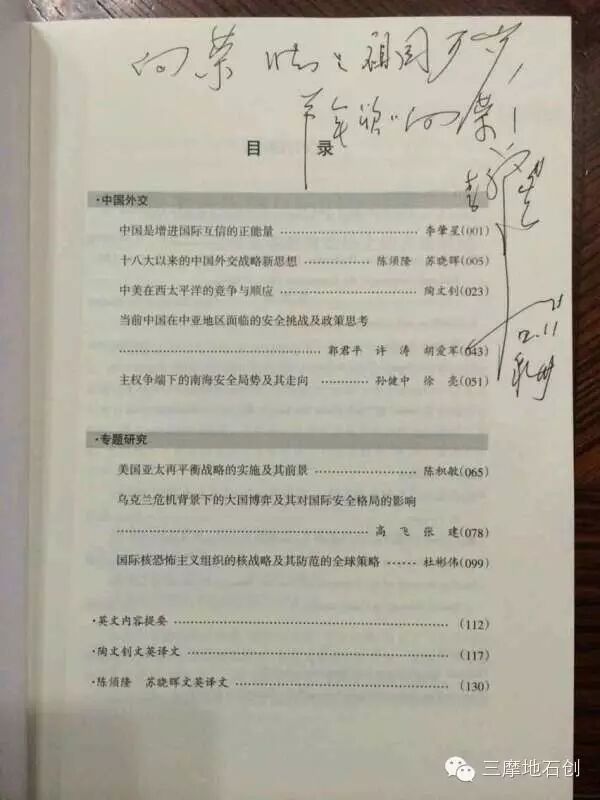 向荣
祖国万岁,
向荣!
目 录
·中国外交
中国是增进国际互信的正能量 李肇星(001)
十八大以来的中国外交战略新思想 陈须隆 苏晓晖(005)
中美在西太平洋的竞争与顺应 陶文钊(023)
当前中国在中亚地区面临的安全挑战及政策思考
郭君平 许 涛 胡爱军(043)
主权争端下的南海安全局势及其走向 孙健中 徐 亮(051)
·专题研究
美国亚太再平衡战略的实施及其前景 陈积敏(065)
乌克兰危机背景下的大国博弈及其对国际安全格局的影响
高 飞 张 建(078)
国际核恐怖主义组织的核战略及其防范的全球策略 杜彬伟(099)
·英文内容提要 (112)
·陶文钊文英译文 (117)
·陈须隆 苏晓晖文英译文 (130)
三摩地石创